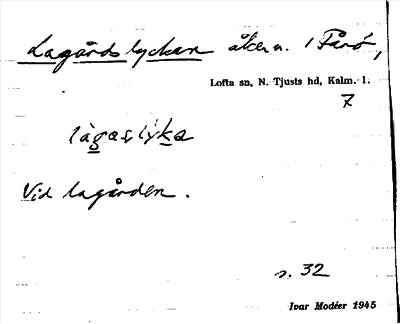 Lagårdslyckan åkern. i Fårö,
Lofta sn, N. Tjusts hd, Kalm. l.
7
lagaslyka
Vid lagården.
s. 32
Ivar Modéer 1945